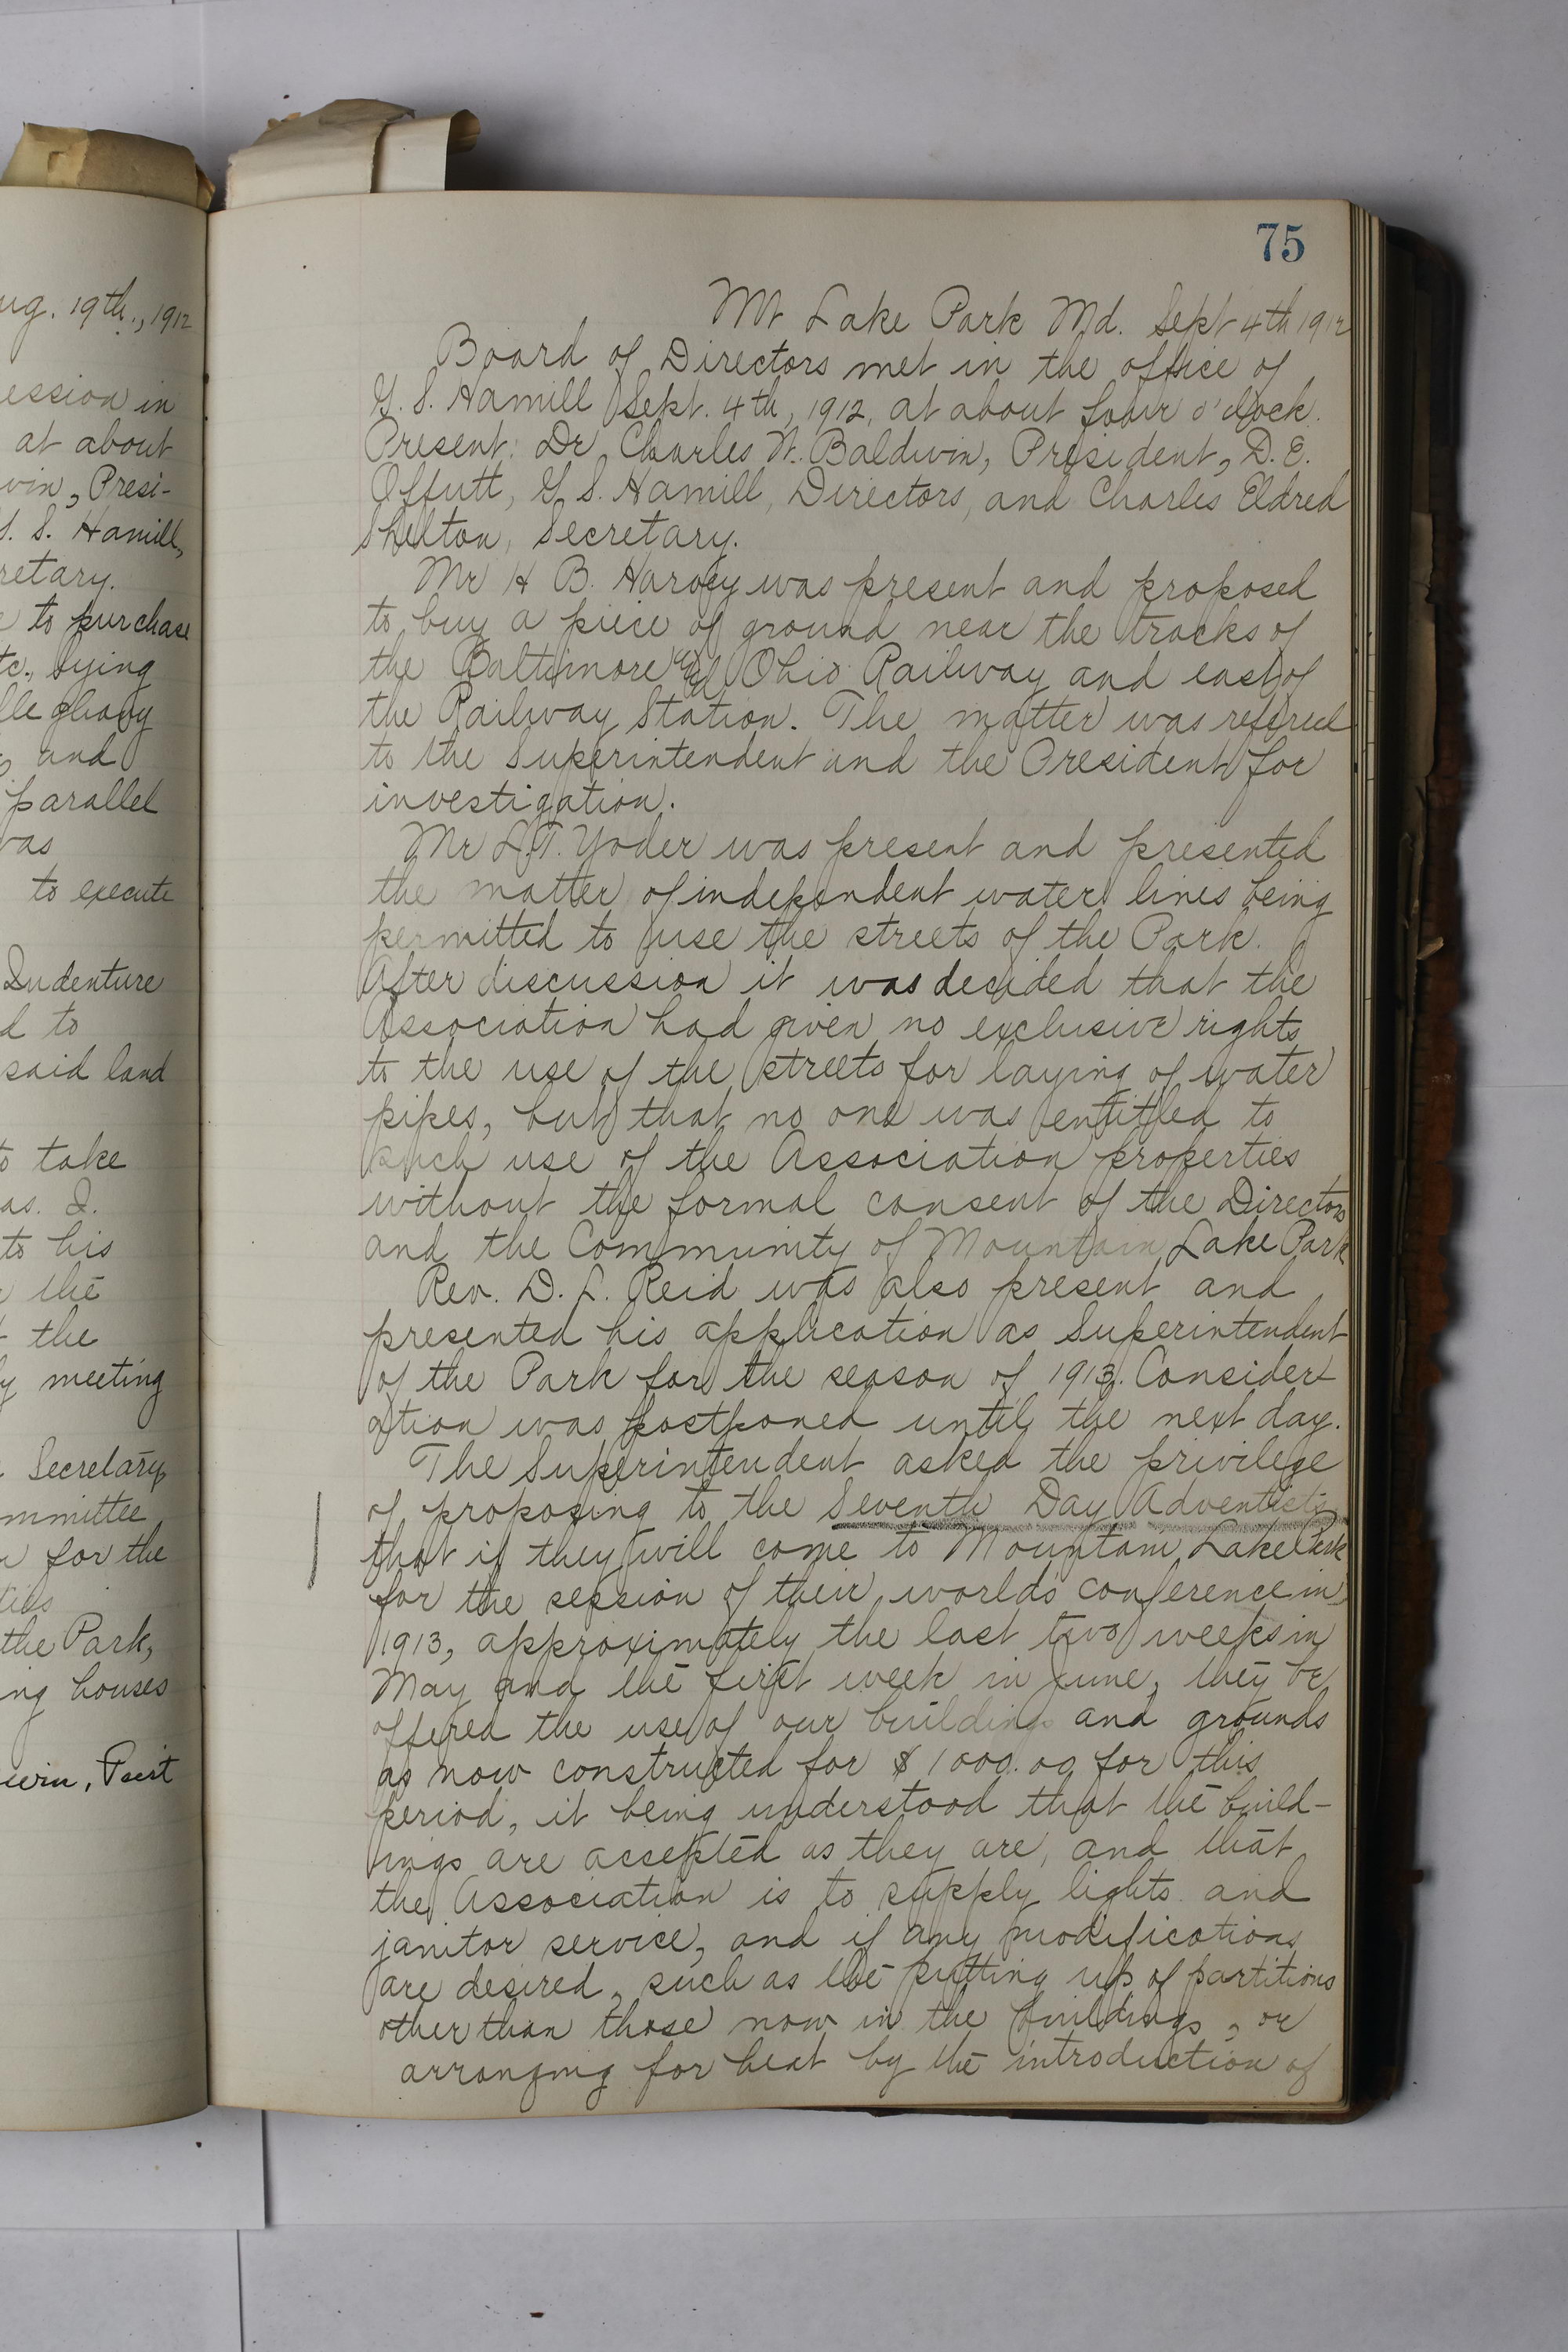 ug. 19th., 1912
ession in
at about
win, Presi-
S. Hamill,
retary.
to purchase
tc., lying
lleghany
and
parallel
was
to execute
Indenture
d to
said land
to take
as. I.
to his
the
the
y meeting
Secretary
mmittee
for the
ties
the Park,
ng houses
win, Prest
75
Mt Lake Park Md. Sept 4th 1912
Board of Directors met in the office of
G. S. Hamill Sept. 4th, 1912, at about four o'clock.
Present: Dr. Charles W. Baldwin, President, D. E.
Offutt, G. S. Hamill, Directors, and Charles Eldred
Shelton, Secretary.
Mr H B. Harvey was present and proposed
to buy a piece of ground near the tracks of
the Baltimore & Ohio Railway and east of
the Railway Station. The matter was refered
to the Superintendent and the President for
investigation.
Mr L. T. Yoder was present and presented
the matter of independent water lines being
permitted to use the streets of the Park.
After discussion it was decided that the
Association had given no exclusive rights
to the use of the streets for laying of water
pipes, but that no one was entitled to
such use of the Association properties
without the formal consent of the Directors
and the Community of Mountain Lake Park
Rev. D. L. Reid was also present and
presented his application as Superintendent
of the Park for the season of 1913. Consider-
ation was postponed until the next day.
The Superintendent asked the privilege
of proposing to the Seventh Day Adventists,
that if they will come to Mountain Lake Park
for the session of their worlds conference in
1913, approximately the last two weeks in
May and the first week in June, they be
offered the use of our buildings and grounds
as now constructed for $1000.00 for this
period, it being understood that the build-
ings are accepted as they are, and that
the Association is to supply lights and
janitor service, and if any modifications
are desired, such as the putting up of partitions
other than those now in the buildings, or
arranging for heat by the introduction of